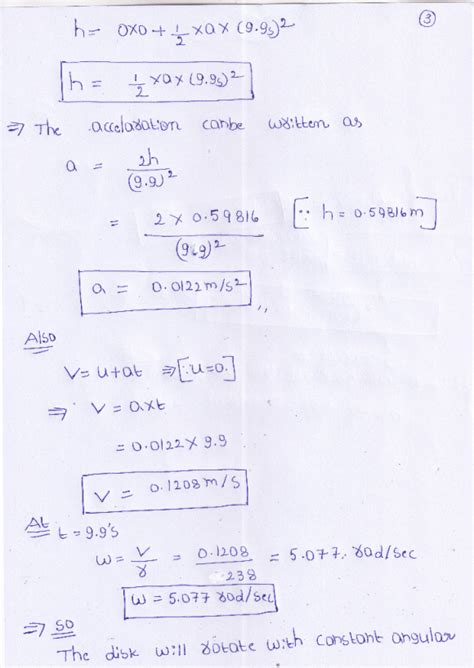 ③
h = 0x0 + 1/2 x a x (9.9s)²
h = 1/2 x a x (9.9s)²
⇒ The accelaration canbe written as
a = 2h/(9.9)²
= 2 x 0.59816/(9.9)² [∵ h = 0.59816m]
a = 0.0122 m/s² ,,
Also
V = u + at ⇒ [∵ u=0.]
⇒ V = axt
= 0.0122 x 9.9
V = 0.1208 m/s
At t = 9.9's
ω = V/r = 0.1208/.238 = 5.077. rad/sec
ω = 5.077 rad/sec
⇒ so
The disk will rotate with constant angular